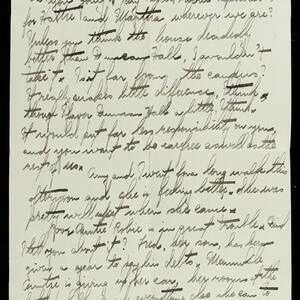 for Hattie and Martha wherever we are?
Unless you think the house decidedly
better than Duncan Hall, I wouldn't
take it. Is it far from the campus?
It really makes little difference, I think,
though I favor Duncan Hall a little, I think.
It would put far less responsibility on you,
and you want to be carefree as well as the
rest of us.
Amy and I went for a long walk this
afternoon and she is feeling better. She was
pretty well when she came.
Poor Auntie Robie is in great trouble. Did
I tell you about it? Fred, her son, has been
given a year to pay his debts. Meanwhile
Auntie is giving up her car, her rooms at the
everything else she can to